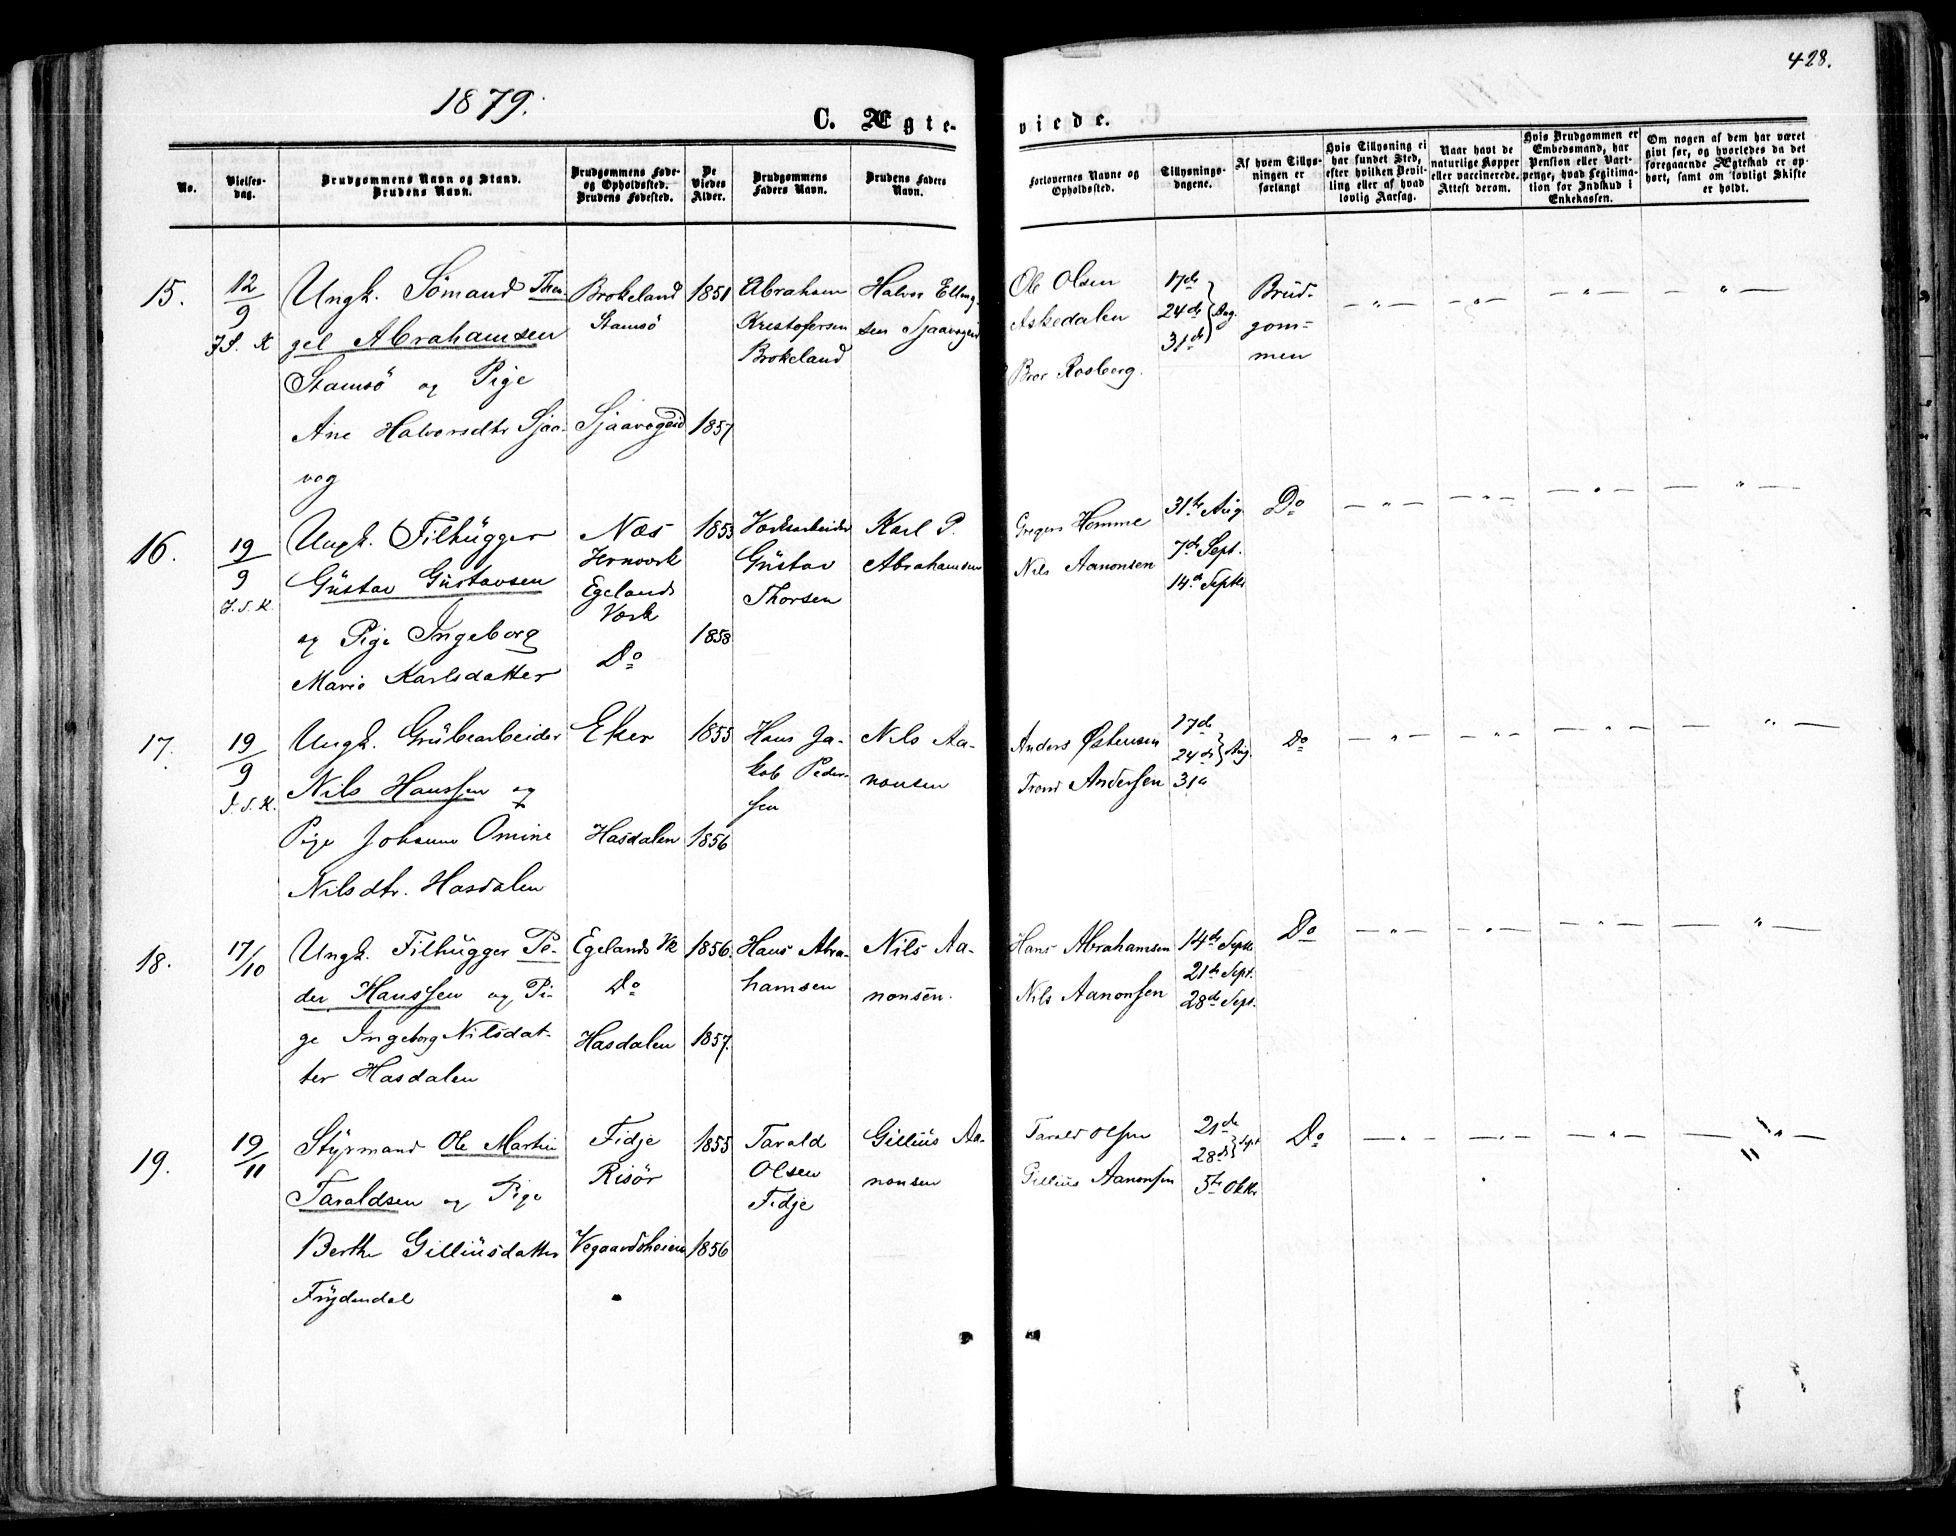 1879.
428.
C. Ægte-
viede.
No.
Vielses-
dag.
Brudgommens Navn og Stand.
Brudens Navn.
Brudgommens Føde-
og Opholdssted.
Brudens Fødested.
De
Viedes
Alder.
Brudgommens
Faders Navn.
Brudens Faders
Navn.
Forlovernes Navne og
Opholdssted.
Tillysnings-
dagene.
Af hvem Tillys-
ningen er
forlangt
Hvis Tillysning ei
har fundet Sted,
efter hvilken Bevil-
ling eller af hvad
lovlig Aarsag.
Naar havt de
naturlige Kopper
eller vaccinerede.
Attest derom.
Hvis Brudgommen er
Embedsmand, har
Pension eller Vart-
penge, hvad Legitima-
tion for Indskud i
Enkekassen.
Om nogen af dem har været
gift før, og hvorledes da det
foregaaende Ægteskab er op-
hørt, samt om lovligt Skifte
er holdt.
15.
12/9
Ungk. Sømand
gel Abrahamsen
Stamsø og Pige
Ane Halvorsdtr Sjaa-
vog
Brokeland
Stamsø
1851
1857
Abraham
Kristofersen
Brokeland
Halvor Elling-
sen
Ole Olsen
Askedalen
Bror Rosberg.
17de
24de } Aug.
31te
Brud-
gom-
men
16.
19/9
J. S. K.
Ungk. Filhugger
Gustav Gustavsen
og Pige Ingeborg
Marie Karlsdatter
Næs
Jernverk
Egelands
Verk
Do
1853
1858
Gustav
Thorsen
Karl P.
Abrahamsen
Gregers Homme
Nils Aanonsen
31te Aug.
7de Sept.
14de Septbr
Do
17.
19/9
J. S. K.
Ungk. Grubearbeider
Nils Hanssen og
Pige Johanne Omine
Nilsdtr. Hasdalen
Eker
Hasdalen
1855
1856
Hans Ja-
kob Peder-
sen
Nils Aa-
nonsen
Anders Østensen
Trond Anderssen
17de
24de } Aug.
31te
Do
18.
17/10
Ungk. Filhugger Pe-
der Hanssen og Pi-
ge Ingeborg Nilsdat-
ter Hasdalen
Egelands Vk
Do
Hasdalen
1856.
1857.
Hans Abra-
hamsen
Nils Aa-
nonsen.
Hans Abrahamsen
Nils Aanonsen
14de Septbr
21de Sept.
28de Sept.
Do
19.
19/11
Styrmand Ole Martin
Taraldsen og Pige
Berthe Gilliusdatter
Frydendal
Fidje
Risør
Vegaardsheien
1855
1856
Tarald
Olsen
Fidje
Gillius Aa-
nonsen
Tarald Olsen
Gillius Aanonsen
21de
28de } Sept
5te Oktbr
Do